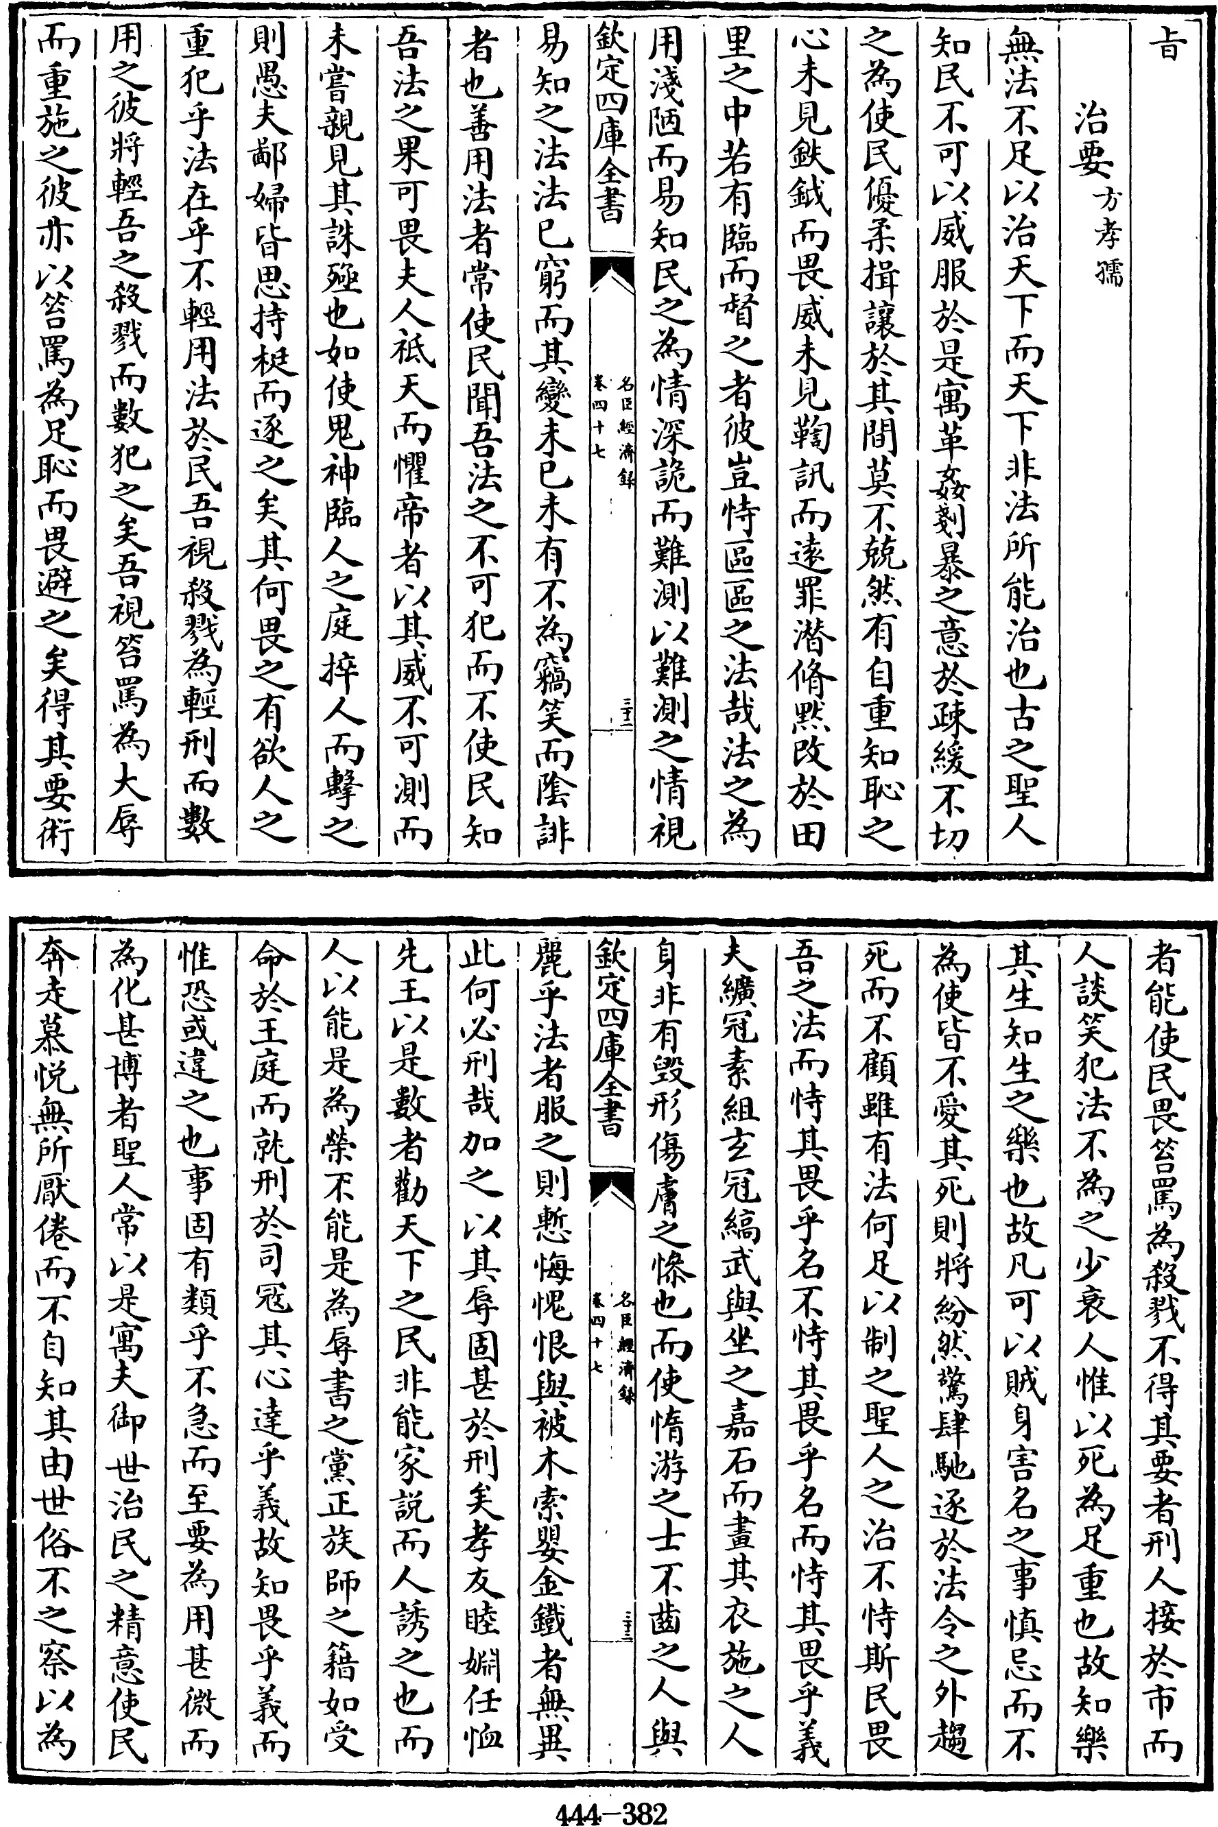 旨
治要 方孝孺
無法不足以治天下而天下非法所能治也古之聖人
知民不可以威服於是寓革姦剗暴之意於疎緩不切
之為使民優柔揖讓於其間莫不兢然有自重知恥之
心未見鈇鉞而畏威未見鞫訊而逺罪潛脩默改於田
里之中若有臨而督之者彼豈恃區區之法哉法之為
用淺陋而易知民之為情深詭而難測以難測之情視
欽定四庫全書
名臣經濟録
卷四十七
三十二
易知之法法已窮而其變未已未有不為竊笑而陰誹
者也善用法者常使民聞吾法之不可犯而不使民知
吾法之果可畏夫人祗天而懼帝者以其威不可測而
未嘗親見其誅殛也如使鬼神臨人之庭捽人而擊之
則愚夫鄙婦皆思持梃而逐之矣其何畏之有欲人之
重犯乎法在乎不輕用法於民吾視殺戮為輕刑而數
用之彼將輕吾之殺戮而數犯之矣吾視笞罵為大辱
而重施之彼亦以笞罵為足恥而畏避之矣得其要術
者能使民畏笞罵為殺戮不得其要者刑人接於市而
人談笑犯法不為之少衰人惟以死為足重也故知樂
其生知生之樂也故凡可以賊身害名之事慎忌而不
為使皆不愛其死則將紛然驁肆馳逐於法令之外趨
死而不顧雖有法何足以制之聖人之治不恃斯民畏
吾之法而恃其畏乎名不恃其畏乎名而恃其畏乎義
夫纊冠素組玄冠縞武與坐之嘉石而畫其衣施之人
身非有毀形傷膚之慘也而使惰游之士不齒之人與
欽定四庫全書
名臣經濟録
卷四十七
三十三
麗乎法者服之則慙悔愧恨與被木索嬰金鐵者無異
此何必刑哉加之以其辱固甚於刑矣孝友睦婣任恤
先王以是數者勸天下之民非能家說而人誘之也而
人以能是為榮不能是為辱書之黨正族師之籍如受
命於王庭而就刑於司冦其心達乎義故知畏乎義而
惟恐或違之也事固有類乎不急而至要為用甚微而
為化甚博者聖人常以是寓夫御世治民之精意使民
奔走慕悅無所厭倦而不自知其由世俗不之察以為
444-382